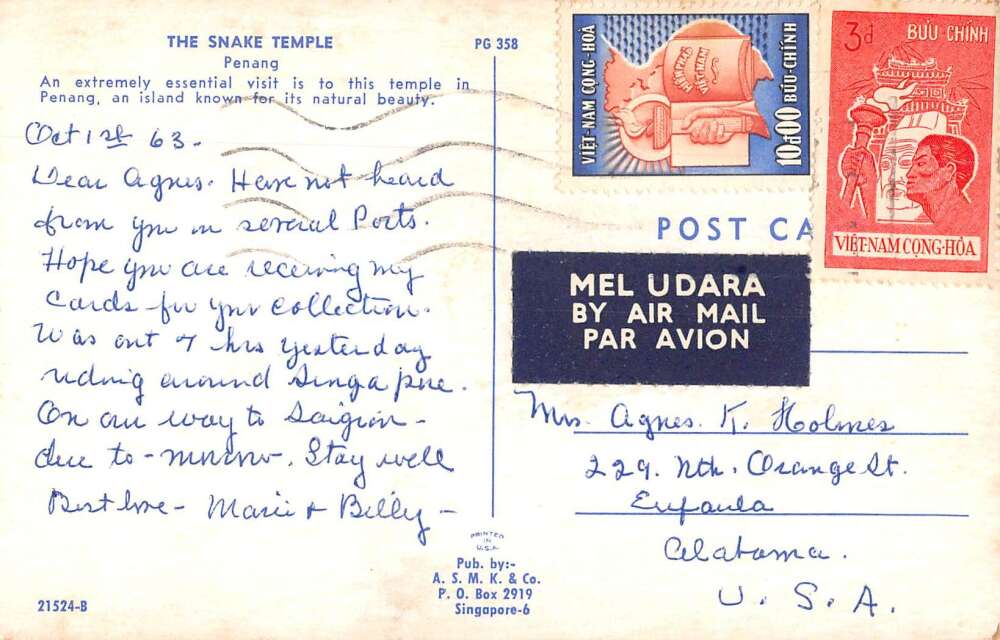 THE SNAKE TEMPLE
Penang
PG 358
An extremely essential visit is to this temple in
Penang, an island known for its natural beauty.
Oct 1st 63.
Dear Agnes. Have not heard
from you in several Ports.
Hope you are receiving my
Cards for your Collection.
Was out 7 hrs yesterday
riding around Singapore.
On our way to Saigon -
due to-morrow. Stay well
Best love - Marie & Billy -
VIỆT-NAM CỘNG-HÒA
HIẾN PHÁP
VIỆT-NAM
10đ00 BƯU-CHÍNH
3đ BƯU-CHÍNH
VIỆT-NAM CỘNG-HÒA
POST CA
MEL UDARA
BY AIR MAIL
PAR AVION
Mrs. Agnes. K. Holmes
229. Nth. Orange St.
Eufaula
Alabama.
U. S. A.
PRINTED
IN
U.S.A.
Pub. by:-
A. S. M. K. & Co.
P. O. Box 2919
Singapore-6
21524-B